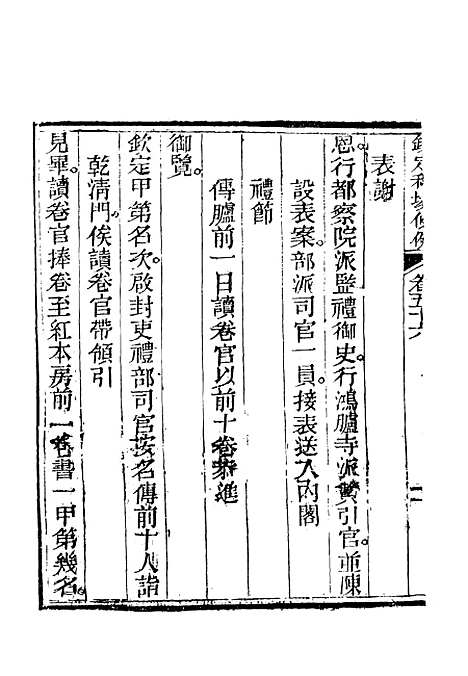 欽定科場條例 卷五十六
表謝
恩。行都察院派監禮御史。行鴻臚寺派贊引官。並陳
設表案。部派司官一員。接表送入內閣
禮節
傳臚前一日讀卷官以前十卷恭進
御覽。
欽定甲第名次。啟封吏禮部司官按名傳前十人詣
乾清門。俟讀卷官帶領引
見畢。讀卷官捧卷至紅本房前一卷書一甲第幾名。